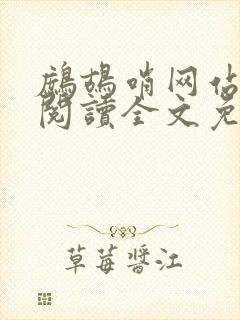 鷓鴣哨网估
閱讀全文免
草莓醬江